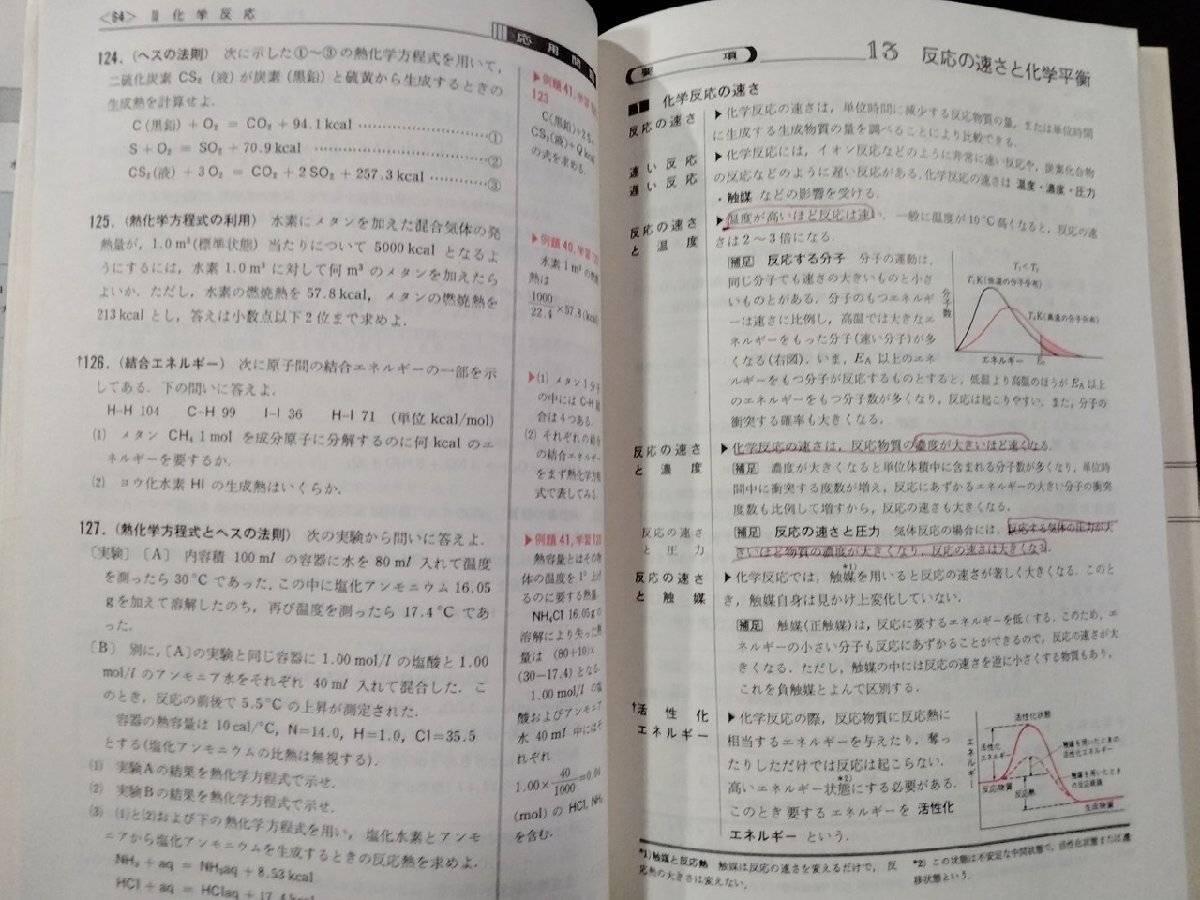 <64> Ⅲ 化学反応
応用問
124. (ヘスの法則) 次に示した①〜③の熱化学方程式を用いて,
二硫化炭素 CS₂ (液) が炭素 (黒鉛) と硫黄から生成するときの
生成熱を計算せよ.
C (黒鉛) + O₂ = CO₂ + 94.1 kcal ……………………①
S + O₂ = SO₂ + 70.9 kcal ……………………②
CS₂(液) + 3 O₂ = CO₂ + 2 SO₂ + 257.3 kcal …………③
▶例題 41, 学習
123
C(黒鉛)+2S
CS₂(液)+Q kcal
の式を求める.
125. (熱化学方程式の利用) 水素にメタンを加えた混合気体の発
熱量が, 1.0 m³(標準状態) 当たりについて 5000 kcal となるよ
うにするには, 水素 1.0 m³ に対して何 m³ のメタンを加えたら
よいか. ただし, 水素の燃焼熱を 57.8 kcal, メタンの燃焼熱を
213 kcal とし, 答えは小数点以下 2 位まで求めよ.
▶例題 40, 学習
水素 1 m³ の燃焼
熱は
1000
22.4 ×57.8 (kcal)
†126. (結合エネルギー) 次に原子間の結合エネルギーの一部を示
してある. 下の問いに答えよ.
H-H 104 C-H 99 I-I 36 H-I 71 (単位 kcal/mol)
(1) メタン CH₄ 1 mol を成分原子に分解するのに何 kcal のエ
ネルギーを要するか.
(2) ヨウ化水素 HI の生成熱はいくらか.
▶(1) メタン 1 分子
の中には C-H 結
合は 4 つある.
(2) それぞれの結合
の結合エネルギー
をまず熱化学方程
式で表してみる.
127. (熱化学方程式とヘスの法則) 次の実験から問いに答えよ.
〔実験〕〔A〕 内容積 100 ml の容器に水を 80 ml 入れて温度
を測ったら 30 °C であった. この中に塩化アンモニウム 16.05
g を加えて溶解したのち, 再び温度を測ったら 17.4 °C であ
った.
〔B〕 別に,〔A〕の実験と同じ容器に 1.00 mol/l の塩酸と 1.00
mol/l のアンモニア水をそれぞれ 40 ml 入れて混合した. こ
のとき, 反応の前後で 5.5 °C の上昇が測定された.
容器の熱容量は 10 cal/°C, N=14.0, H=1.0, Cl=35.5
とする(塩化アンモニウムの比熱は無視する).
(1) 実験Aの結果を熱化学方程式で示せ.
(2) 実験Bの結果を熱化学方程式で示せ.
(3) (1)と(2)および下の熱化学方程式を用い, 塩化水素とアンモ
ニアから塩化アンモニウムを生成するときの反応熱を求めよ.
NH₃ + aq = NH₃aq + 8.53 kcal
HCl + aq = HClaq + 17.4 kcal
▶例題 41, 学習 120
熱容量とはその物
体の温度を 1° 上げ
るのに要する熱量.
NH₄Cl 16.05 g の
溶解により失った熱
量は (80+10)×
(30−17.4) となる.
1.00 mol/l の塩
酸およびアンモニア
水 40 ml 中にはそ
れぞれ
1.00× 40/1000 =0.04
(mol) の HCl, NH₃
を含む.
要項
13 反応の速さと化学平衡
化学反応の速さ
反応の速さ
▶化学反応の速さは, 単位時間に減少する反応物質の量, または単位時間
に生成する生成物質の量を調べることにより比較できる.
速い反応
遅い反応
▶化学反応には, イオン反応などのように非常に速い反応や, 炭素化合物
の反応などのように遅い反応がある. 化学反応の速さは 温度・濃度・圧力
・触媒 などの影響を受ける.
反応の速さ
と温度
▶温度が高いほど反応は速い. 一般に温度が 10 °C 高くなると, 反応の速
さは 2〜3 倍になる.
[補足] 反応する分子 分子の運動は,
同じ分子でも速さの大きいものと小さ
いものとがある. 分子のもつエネルギ
ーは速さに比例し, 高温では大きなエ
ネルギーをもった分子 (速い分子) が多
くなる (右図). いま, EA 以上のエネ
ルギーをもつ分子が反応するものとすると, 低温より高温のほうが EA 以上
のエネルギーをもつ分子数が多くなり, 反応は起こりやすい. また, 分子の
衝突する確率も大きくなる.
T₁<T₂
T₁K(低温の分子分布)
T₂K(高温の分子分布)
分子数
エネルギー
EA
反応の速さ
と濃度
▶化学反応の速さは, 反応物質の濃度が大きいほど速くなる.
[補足] 濃度が大きくなると単位体積中に含まれる分子数が多くなり, 単位時
間中に衝突する度数が増え, 反応にあずかるエネルギーの大きい分子の衝突
度数も比例して増すから, 反応の速さも大きくなる.
反応の速さ
と圧力
[補足] 反応の速さと圧力 気体反応の場合には, 反応する気体の圧力が大
きいほど物質の濃度が大きくなり, 反応の速さは大きくなる.
反応の速さ
と触媒
▶化学反応では, 触媒*1)を用いると反応の速さが著しく大きくなる. このと
き, 触媒自身は見かけ上変化していない.
[補足] 触媒 (正触媒) は, 反応に要するエネルギーを低くする. このため, エ
ネルギーの小さい分子も反応にあずかることができるので, 反応の速さが大
きくなる. ただし, 触媒の中には反応の速さを逆に小さくする物質もあり,
これを負触媒とよんで区別する.
†活性化
エネルギー
▶化学反応の際, 反応物質に反応熱に
相当するエネルギーを与えたり, 奪っ
たりしただけでは反応は起こらない.
高いエネルギー状態*2)にする必要がある.
このとき要するエネルギーを 活性化
エネルギー という.
活性化状態
エネルギー
活性化
エネルギー
触媒を用いたときの
活性化エネルギー
触媒を用いたとき
の反応経路
反応物質
反応熱
生成物質
*1) 触媒と反応熱 触媒は反応の速さを変えるだけで, 反
応熱の大きさは変えない.
*2) この状態は不安定な中間状態で, 活性化状態または遷
移状態という.